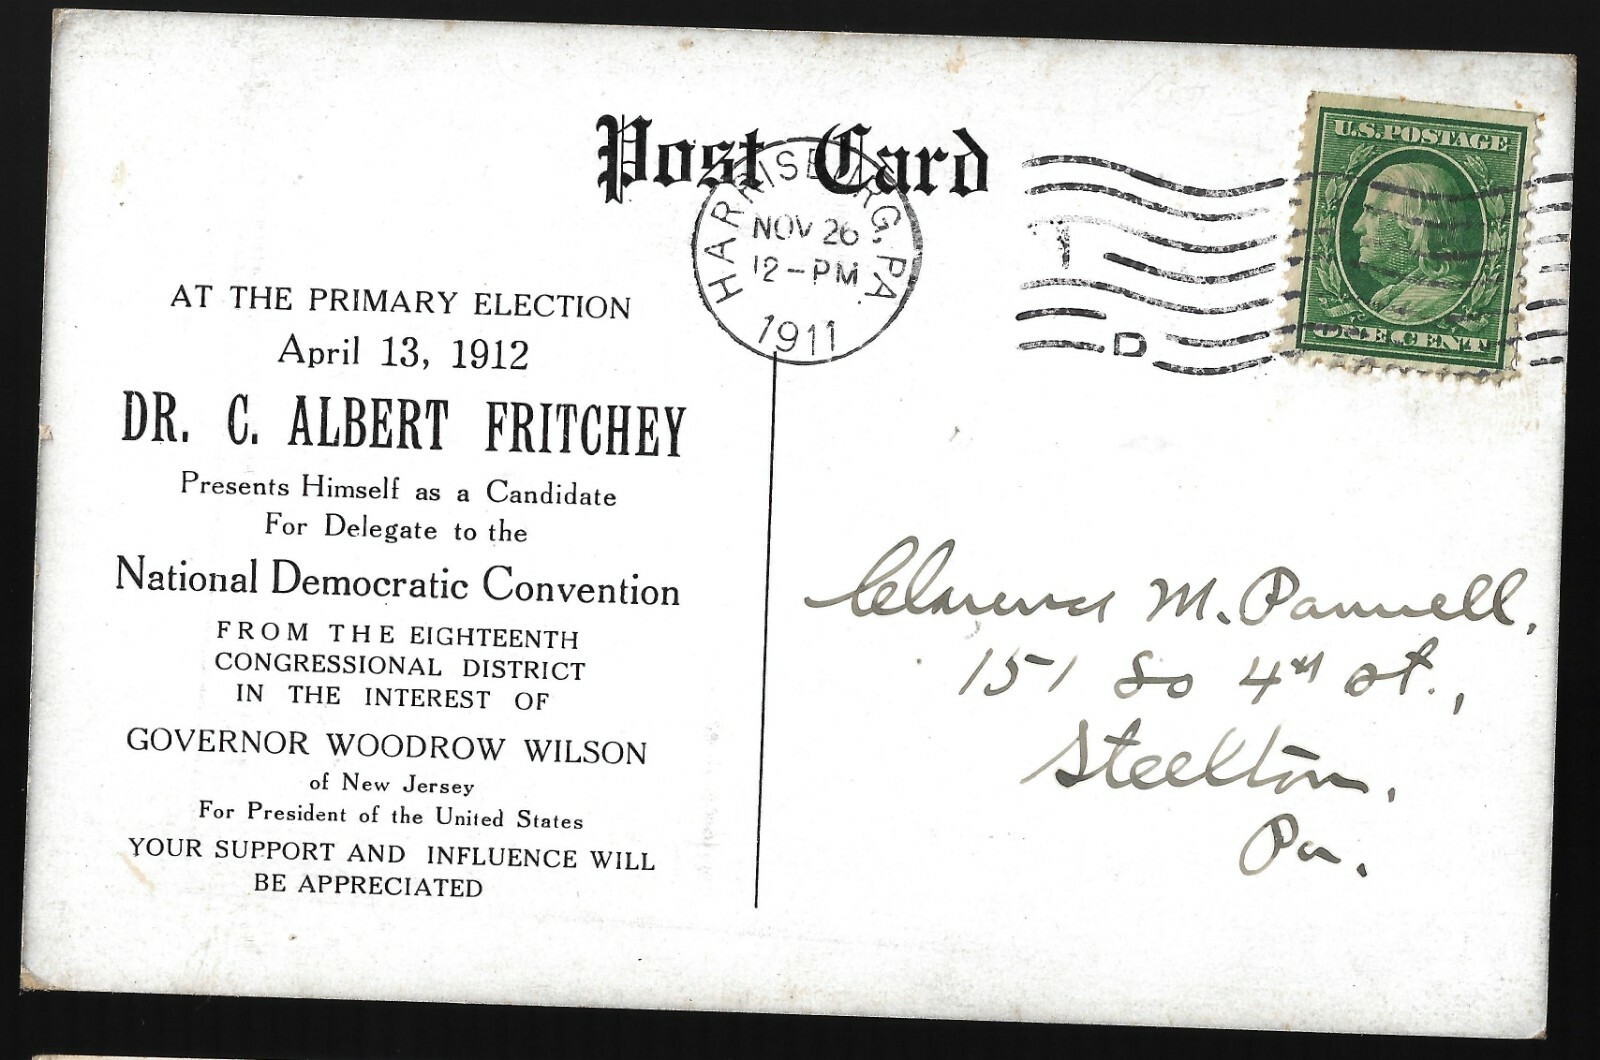 Post Card
HARRISBURG, PA.
NOV 26
12-PM
1911
D
U.S. POSTAGE
ONE CENT
AT THE PRIMARY ELECTION
April 13, 1912
DR. C. ALBERT FRITCHEY
Presents Himself as a Candidate
For Delegate to the
National Democratic Convention
FROM THE EIGHTEENTH
CONGRESSIONAL DISTRICT
IN THE INTEREST OF
GOVERNOR WOODROW WILSON
of New Jersey
For President of the United States
YOUR SUPPORT AND INFLUENCE WILL
BE APPRECIATED
Clarence M. Pannell,
151 So 4th St.,
Steelton,
Pa.